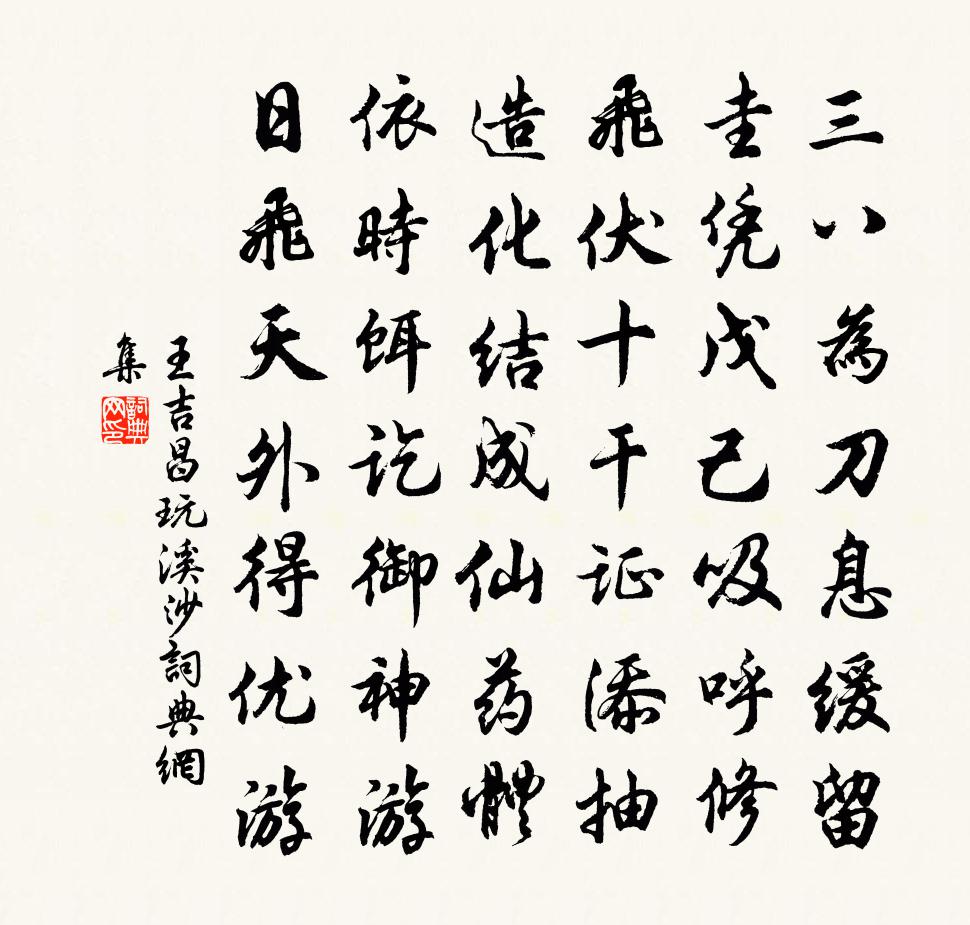 三八為刀息緩留
圭凭戊己吸呼修
飛伏十干证添抽
造化结成仙药體
依時餌讫御神游
日飛天外得优游
王吉昌玩溪沙詞典網
集
詞典
网印